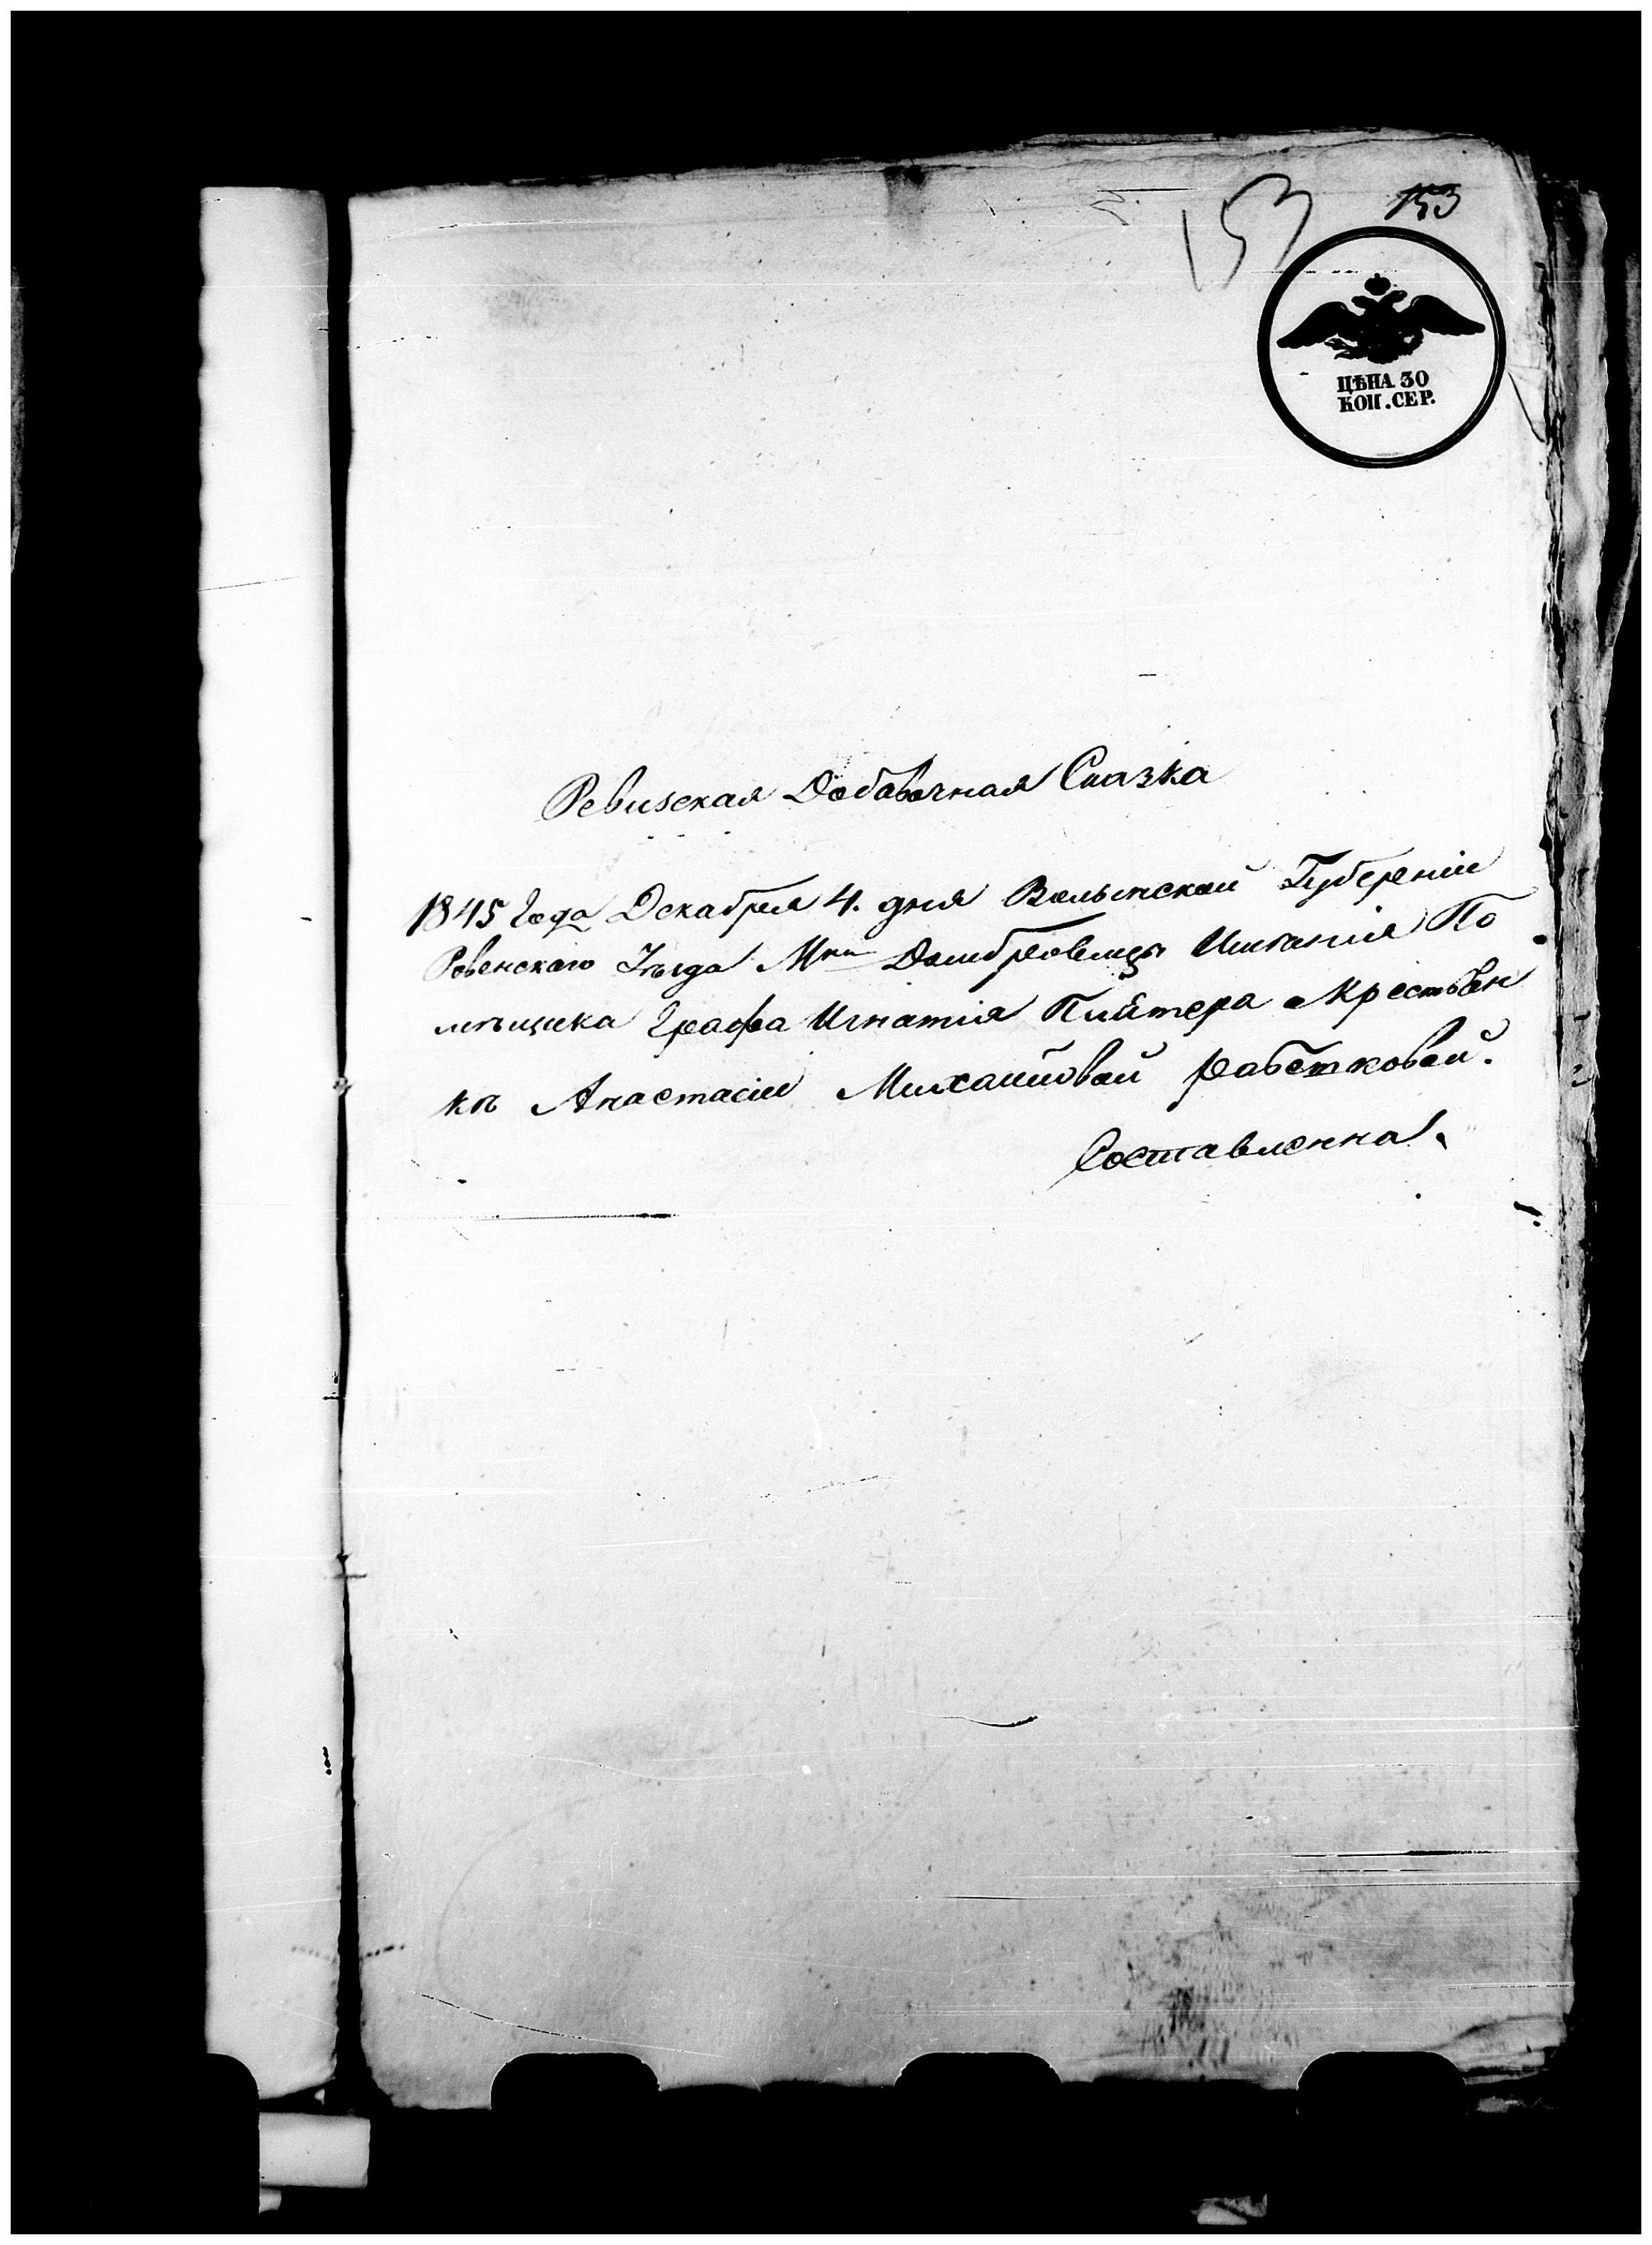 153 153
ЦѢНА 30
КОП. СЕР.
Ревизская Добавочная Сказка
1845 Года Декабря 4. дня Волынской Губерніи
Ровенскаго Уѣзда Мка Домбровицъ Имѣнія По
мѣщика Графа Игнатія Плятера о Крестьян
кѣ Анастасіи Михайловой
Составленна.